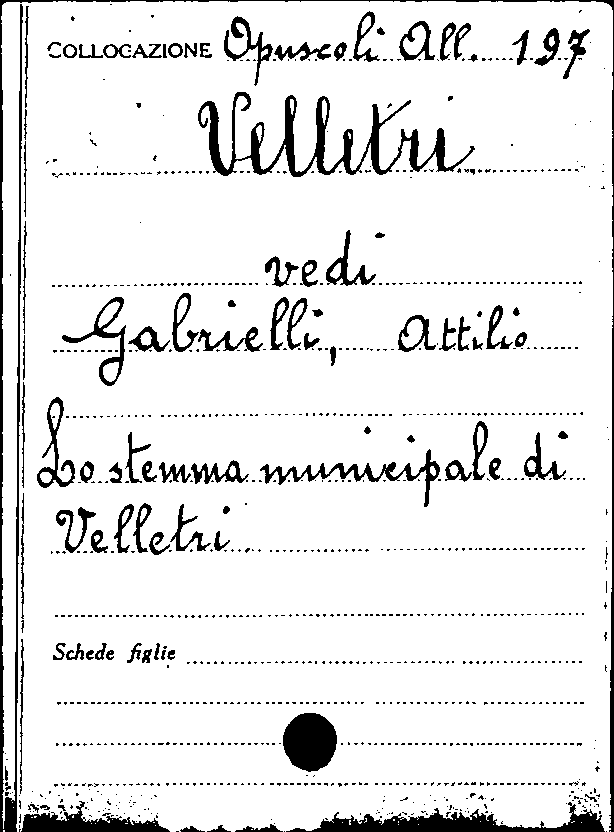 COLLOCAZIONE Opuscoli All. 197
Velletri
vedi
Gabrielli, Attilio
Lo stemma municipale di
Velletri.
Schede figlie